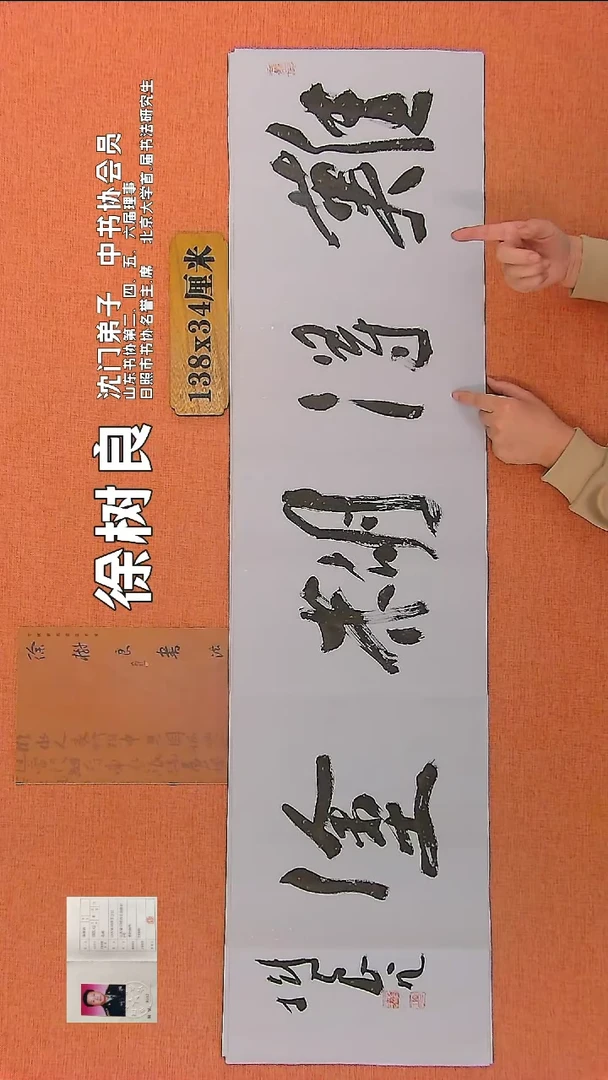 徐树良
沈门弟子 中书协会员
山东书协第二、四、五、六届理事
日照市书协名誉主席 北京大学首届书法研究生
138x34厘米
徐樹良書法
難得糊塗
樹良